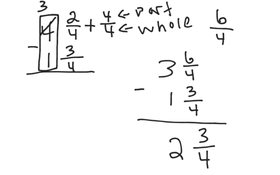 3
4 2/4 + 4/4 ← part
← whole
6/4
- 1 3/4
3 6/4
- 1 3/4
2 3/4